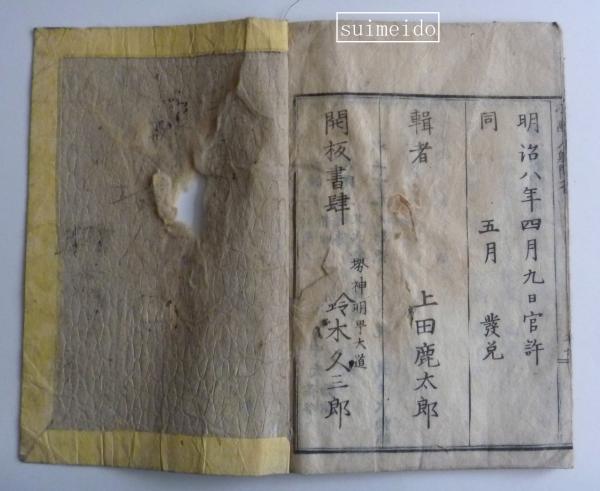 suimeido
明治八年四月九日官許
同 五月 發兌
輯者 上田鹿太郎
開板書肆 堺神明甲大道 鈴木久三郎